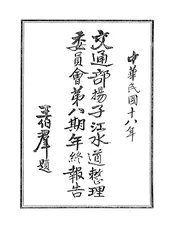 中華民國十八年
交通部揚子江水道整理
委員會第八期年終報告
王伯羣題